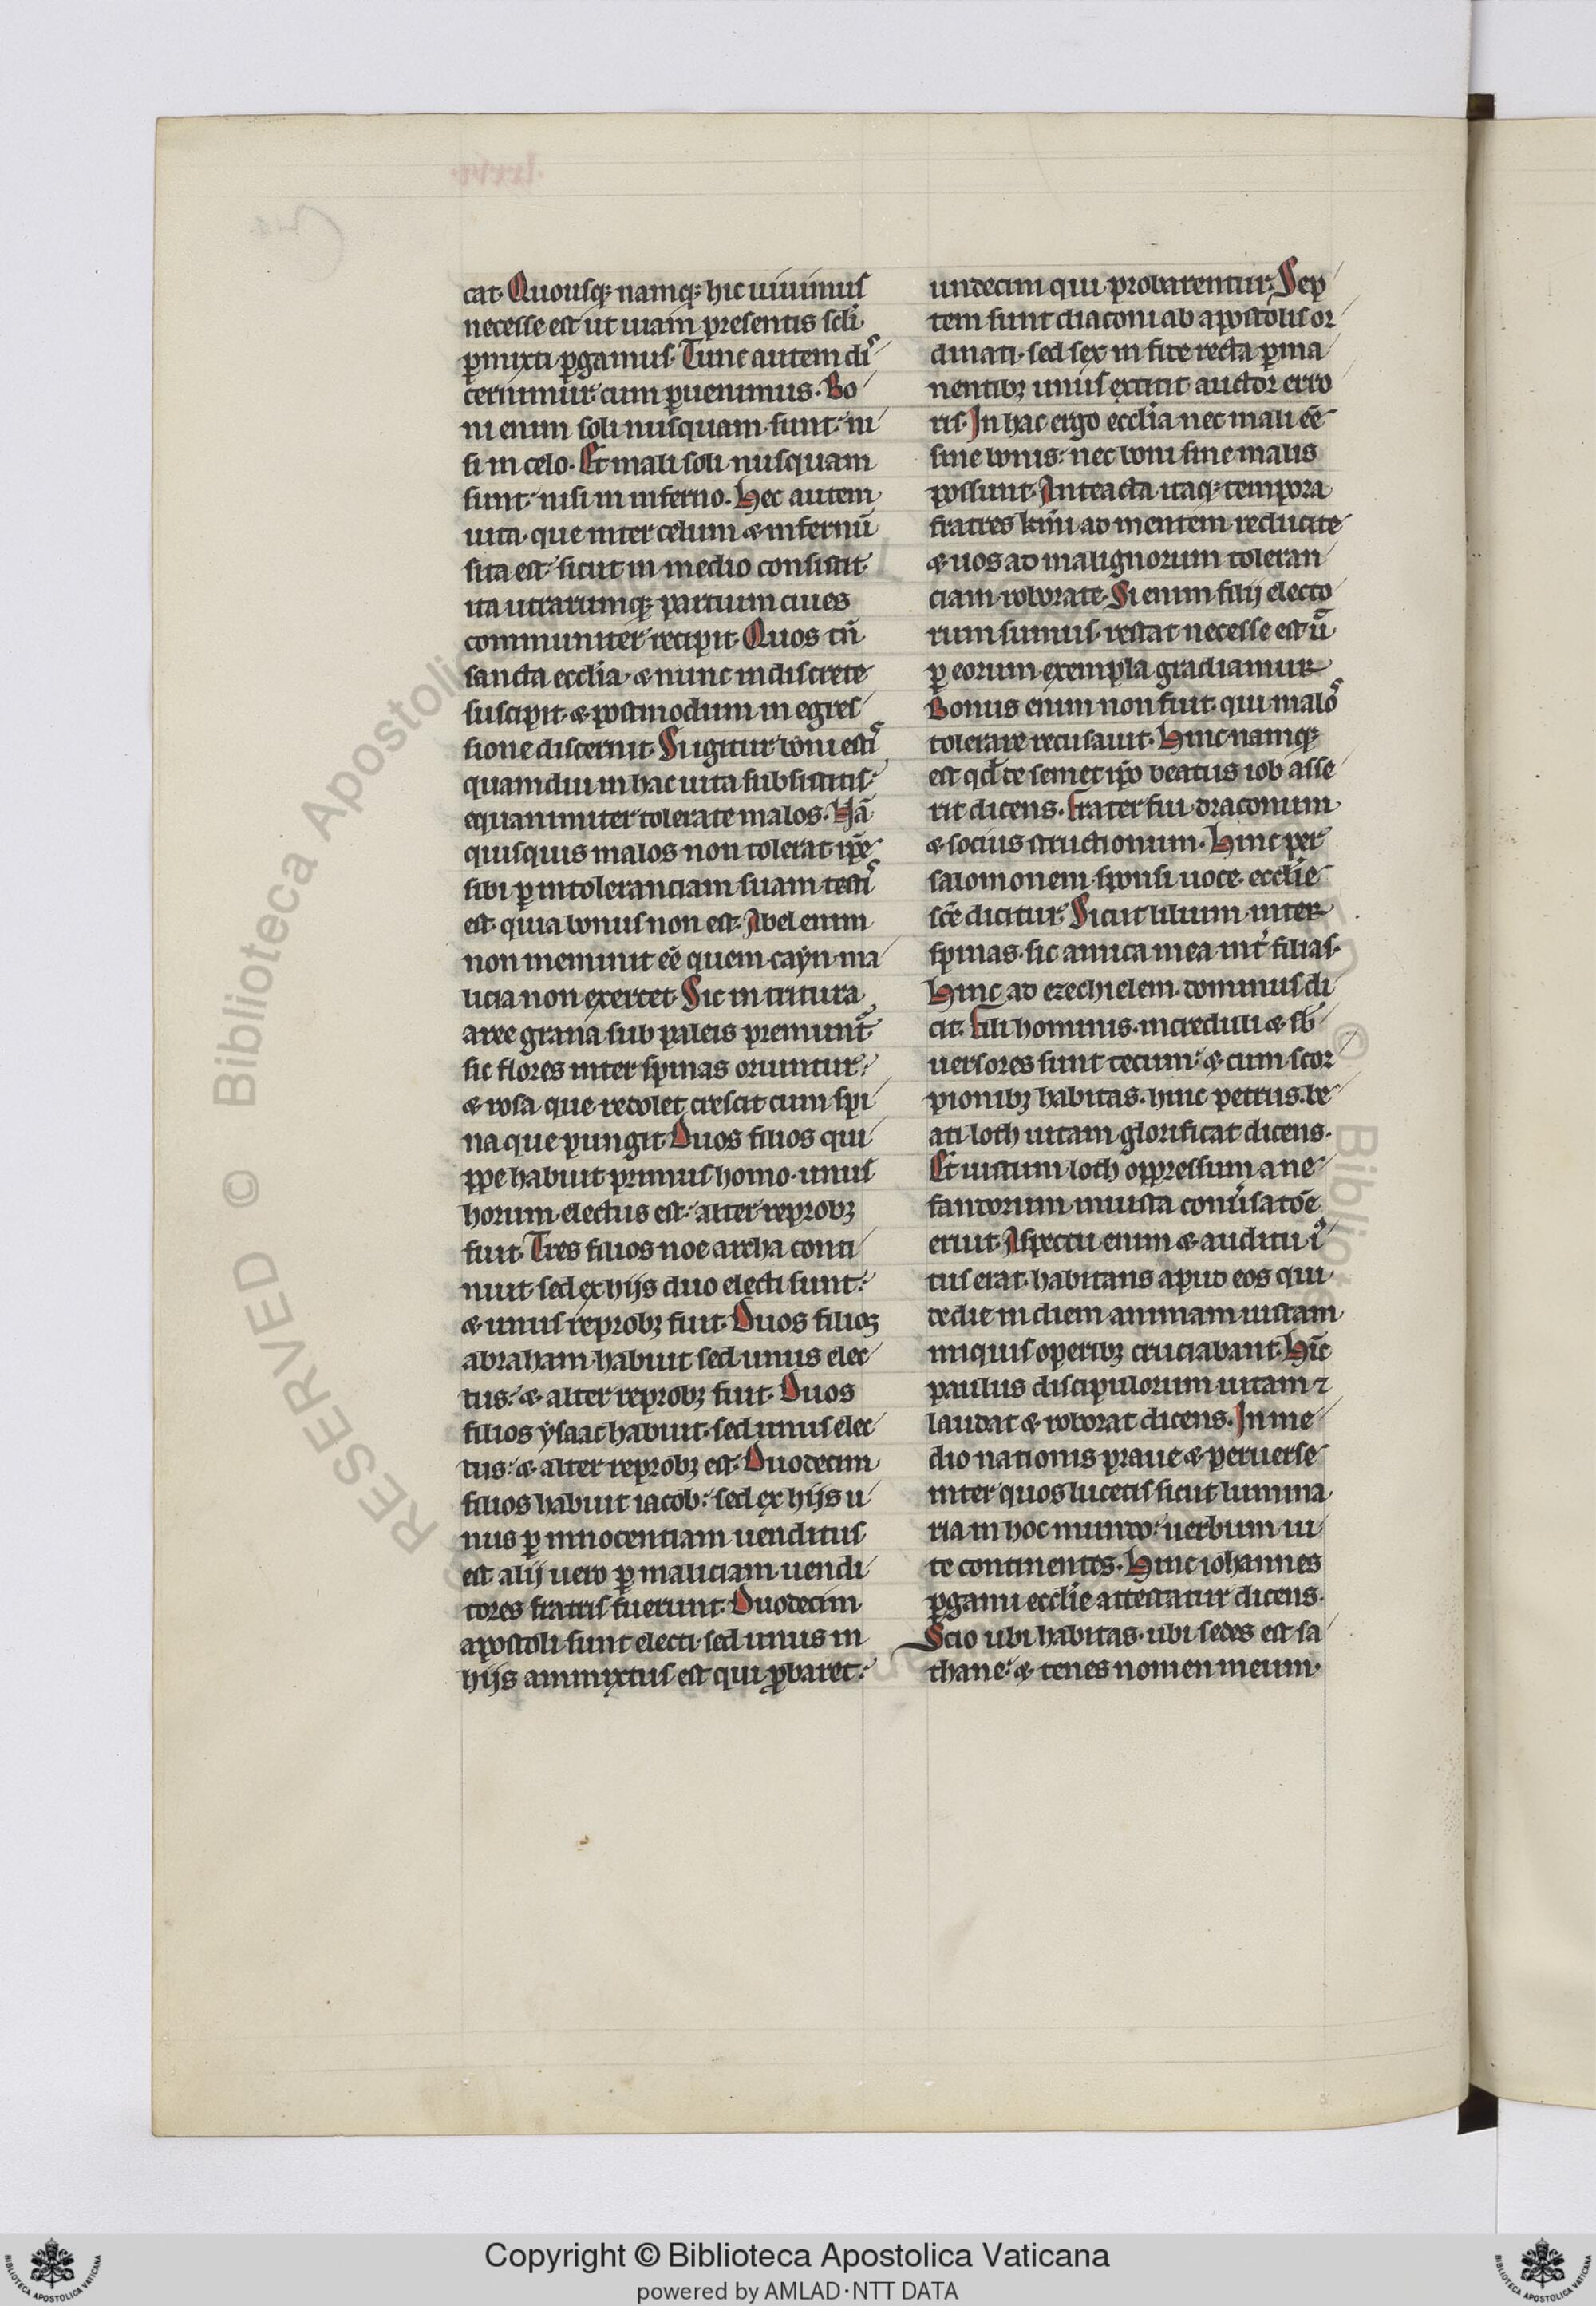 cat. Quousq; namq; hic uiuimus
necesse est ut uiam presentis scli
pmixti pgamus. Tunc autem dis
cernimur cum puenimus. Bo
ni enim soli nusquam sunt: ni
si in celo. Et mali soli nusquam
sunt: nisi in inferno. Hec autem
uita. que inter celum & infernū
sita est: sicut in medio consistit
ita utrarumq; partium ciues
communiter recipit. Quos tn̄
sancta ecclia. & nunc indiscrete
suscipit. & postmodum in egres
sione discernit. Si igitur boni estis
quamdiu in hac uita subsistitis:
equanimiter tolerate malos. Nā
quisquis malos non tolerat ip̄e
sibi p intoleranciam suam testis
est. quia bonus non est. Abel enim
non meminit eē quem cayn ma
licia non exercet. Sic in tritura
aree grana sub paleis premunt
sic flores inter spinas oriuntur:
& rosa que redolet crescit cum spi
na que pungit. Duos filios qui
ppe habuit primus homo. unus
horum electus est: alter reprobꝫ
fuit. Tres filios noe archa conti
nuit. sed ex hijs duo electi sunt:
& unus reprobꝫ fuit. Duos filios
abraham habuit sed unus elec
tus: & alter reprobꝫ fuit. Duos
filios ysaac habuit. sed unus elec
tus: & alter reprobꝫ est. Duodecim
filios habuit iacob: sed ex hijs u
nus p innocentiam uenditus
est alij uero p maliciam uendi
tores fratris fuerunt. Duodecim
apostoli sunt electi. sed unus in
hijs ammixtus est qui pbaret:
undecim qui probarentur. Sep
tem sunt diaconi ab apostolis or
dinati. sed sex in fide recta pma
nentibꝫ unus extitit auctor erro
ris. In hac ergo ecclia nec mali eē
sine bonis: nec boni sine malis
possunt. Anteacta itaq; tempora
fratres kmi ad mentem reducite
& uos ad malignorum toleran
ciam roborate. Si enim filij electo
rum sumus. restat necesse est ut
p eorum exempla gradiamur
Bonus enim non fuit. qui malos
tolerare recusauit. Hinc namq;
est qd de semet ipo beatus iob asse
rit dicens. Frater fui draconum
& socius structionum. Hinc per
salomonem sponsi uoce. ecclie
sce dicitur. Sicut lilium inter
spinas. sic amica mea int filias.
Hinc ad ezechielem dominus di
cit. Fili hominis. increduli & sb
uersores sunt tecum: & cum scor
pionibꝫ habitas. hinc petrus. be
ati loth uitam glorificat dicens.
Et iustum loth oppressum a ne
fandorum iniusta conusatoē
eruit. Aspectu enim & auditu is
tus erat. habitans apud eos qui
dedie in diem animam iustam
iniquis operibꝫ cruciabant. Hīc
paulus discipulorum uitam ⁊
laudat & roborat dicens. In me
dio nationis praue & peruerse
inter quos lucetis sicut lumina
ria in hoc mundo: uerbum ui
te continentes. Hinc iohannes
pgami ecclie attestatur dicens.
Scio ubi habitas. ubi sedes est sa
thane: & tenes nomen meum.
Copyright © Biblioteca Apostolica Vaticana
powered by AMLAD·NTT DATA